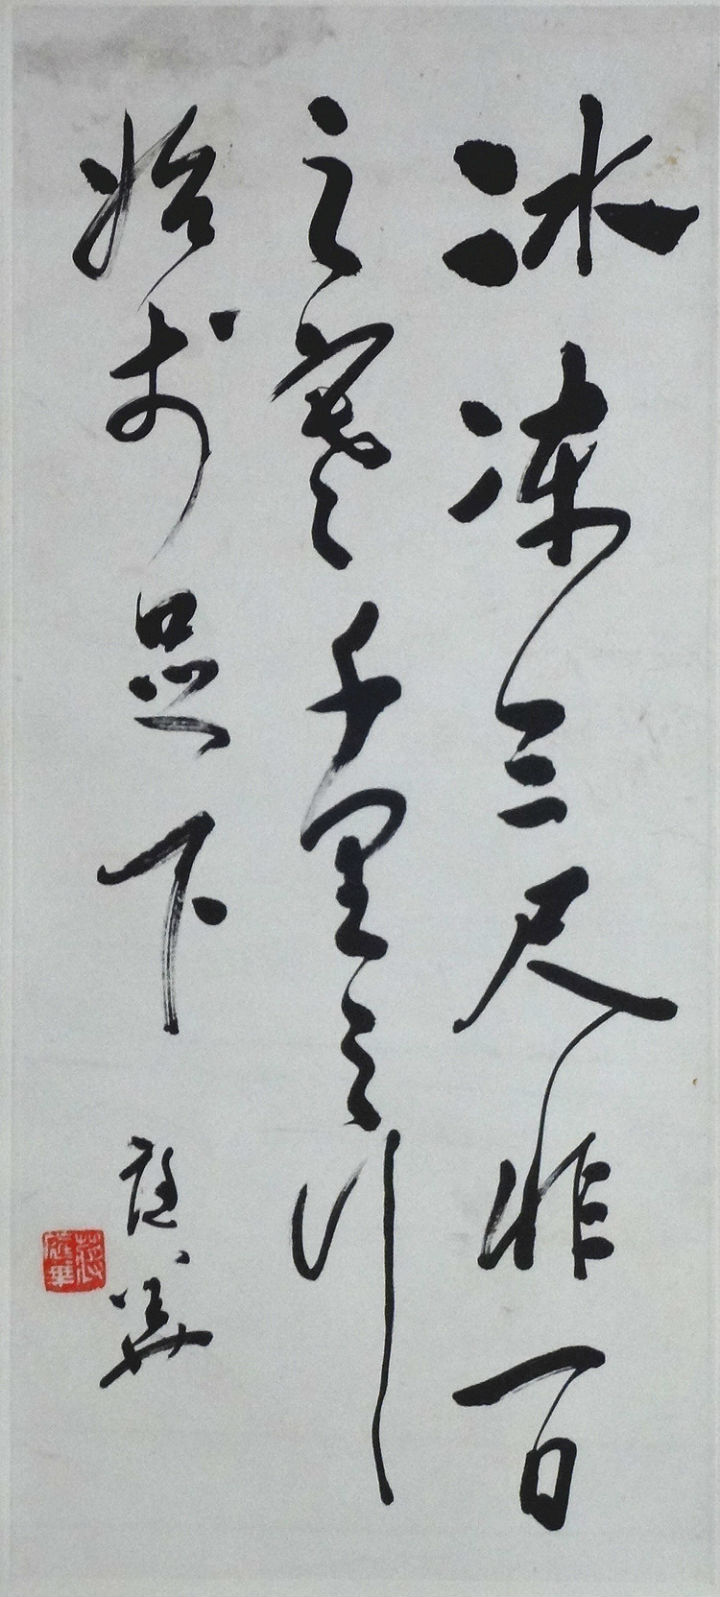 冰凍三尺非一日
之寒千里之行
始於足下